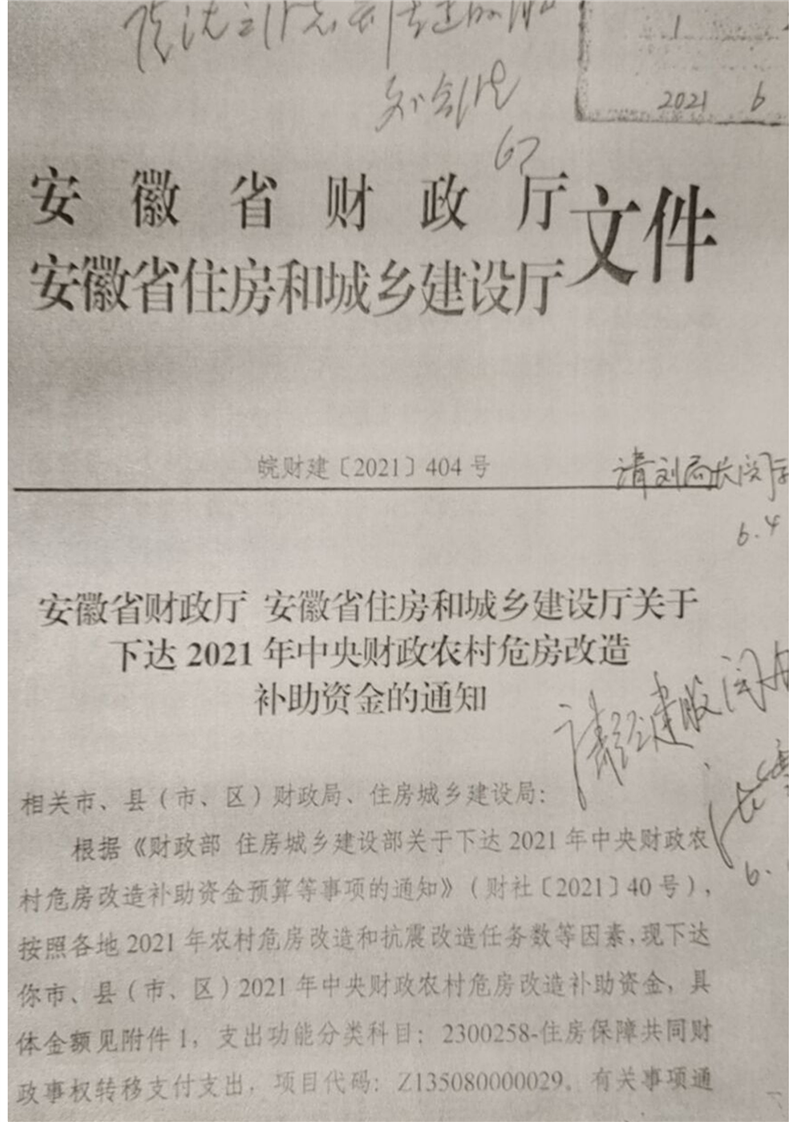 2021 6
安徽省财政厅
文件
安徽省住房和城乡建设厅
皖财建〔2021〕404号
请刘局长阅
6.4
安徽省财政厅 安徽省住房和城乡建设厅关于
下达2021年中央财政农村危房改造
补助资金的通知
请经建股阅
相关市、县（市、区）财政局、住房城乡建设局：
根据《财政部 住房城乡建设部关于下达2021年中央财政农
村危房改造补助资金预算等事项的通知》（财社〔2021〕40号），
按照各地2021年农村危房改造和抗震改造任务数等因素，现下达
你市、县（市、区）2021年中央财政农村危房改造补助资金，具
体金额见附件1，支出功能分类科目：2300258-住房保障共同财
政事权转移支付支出，项目代码：Z135080000029。有关事项通